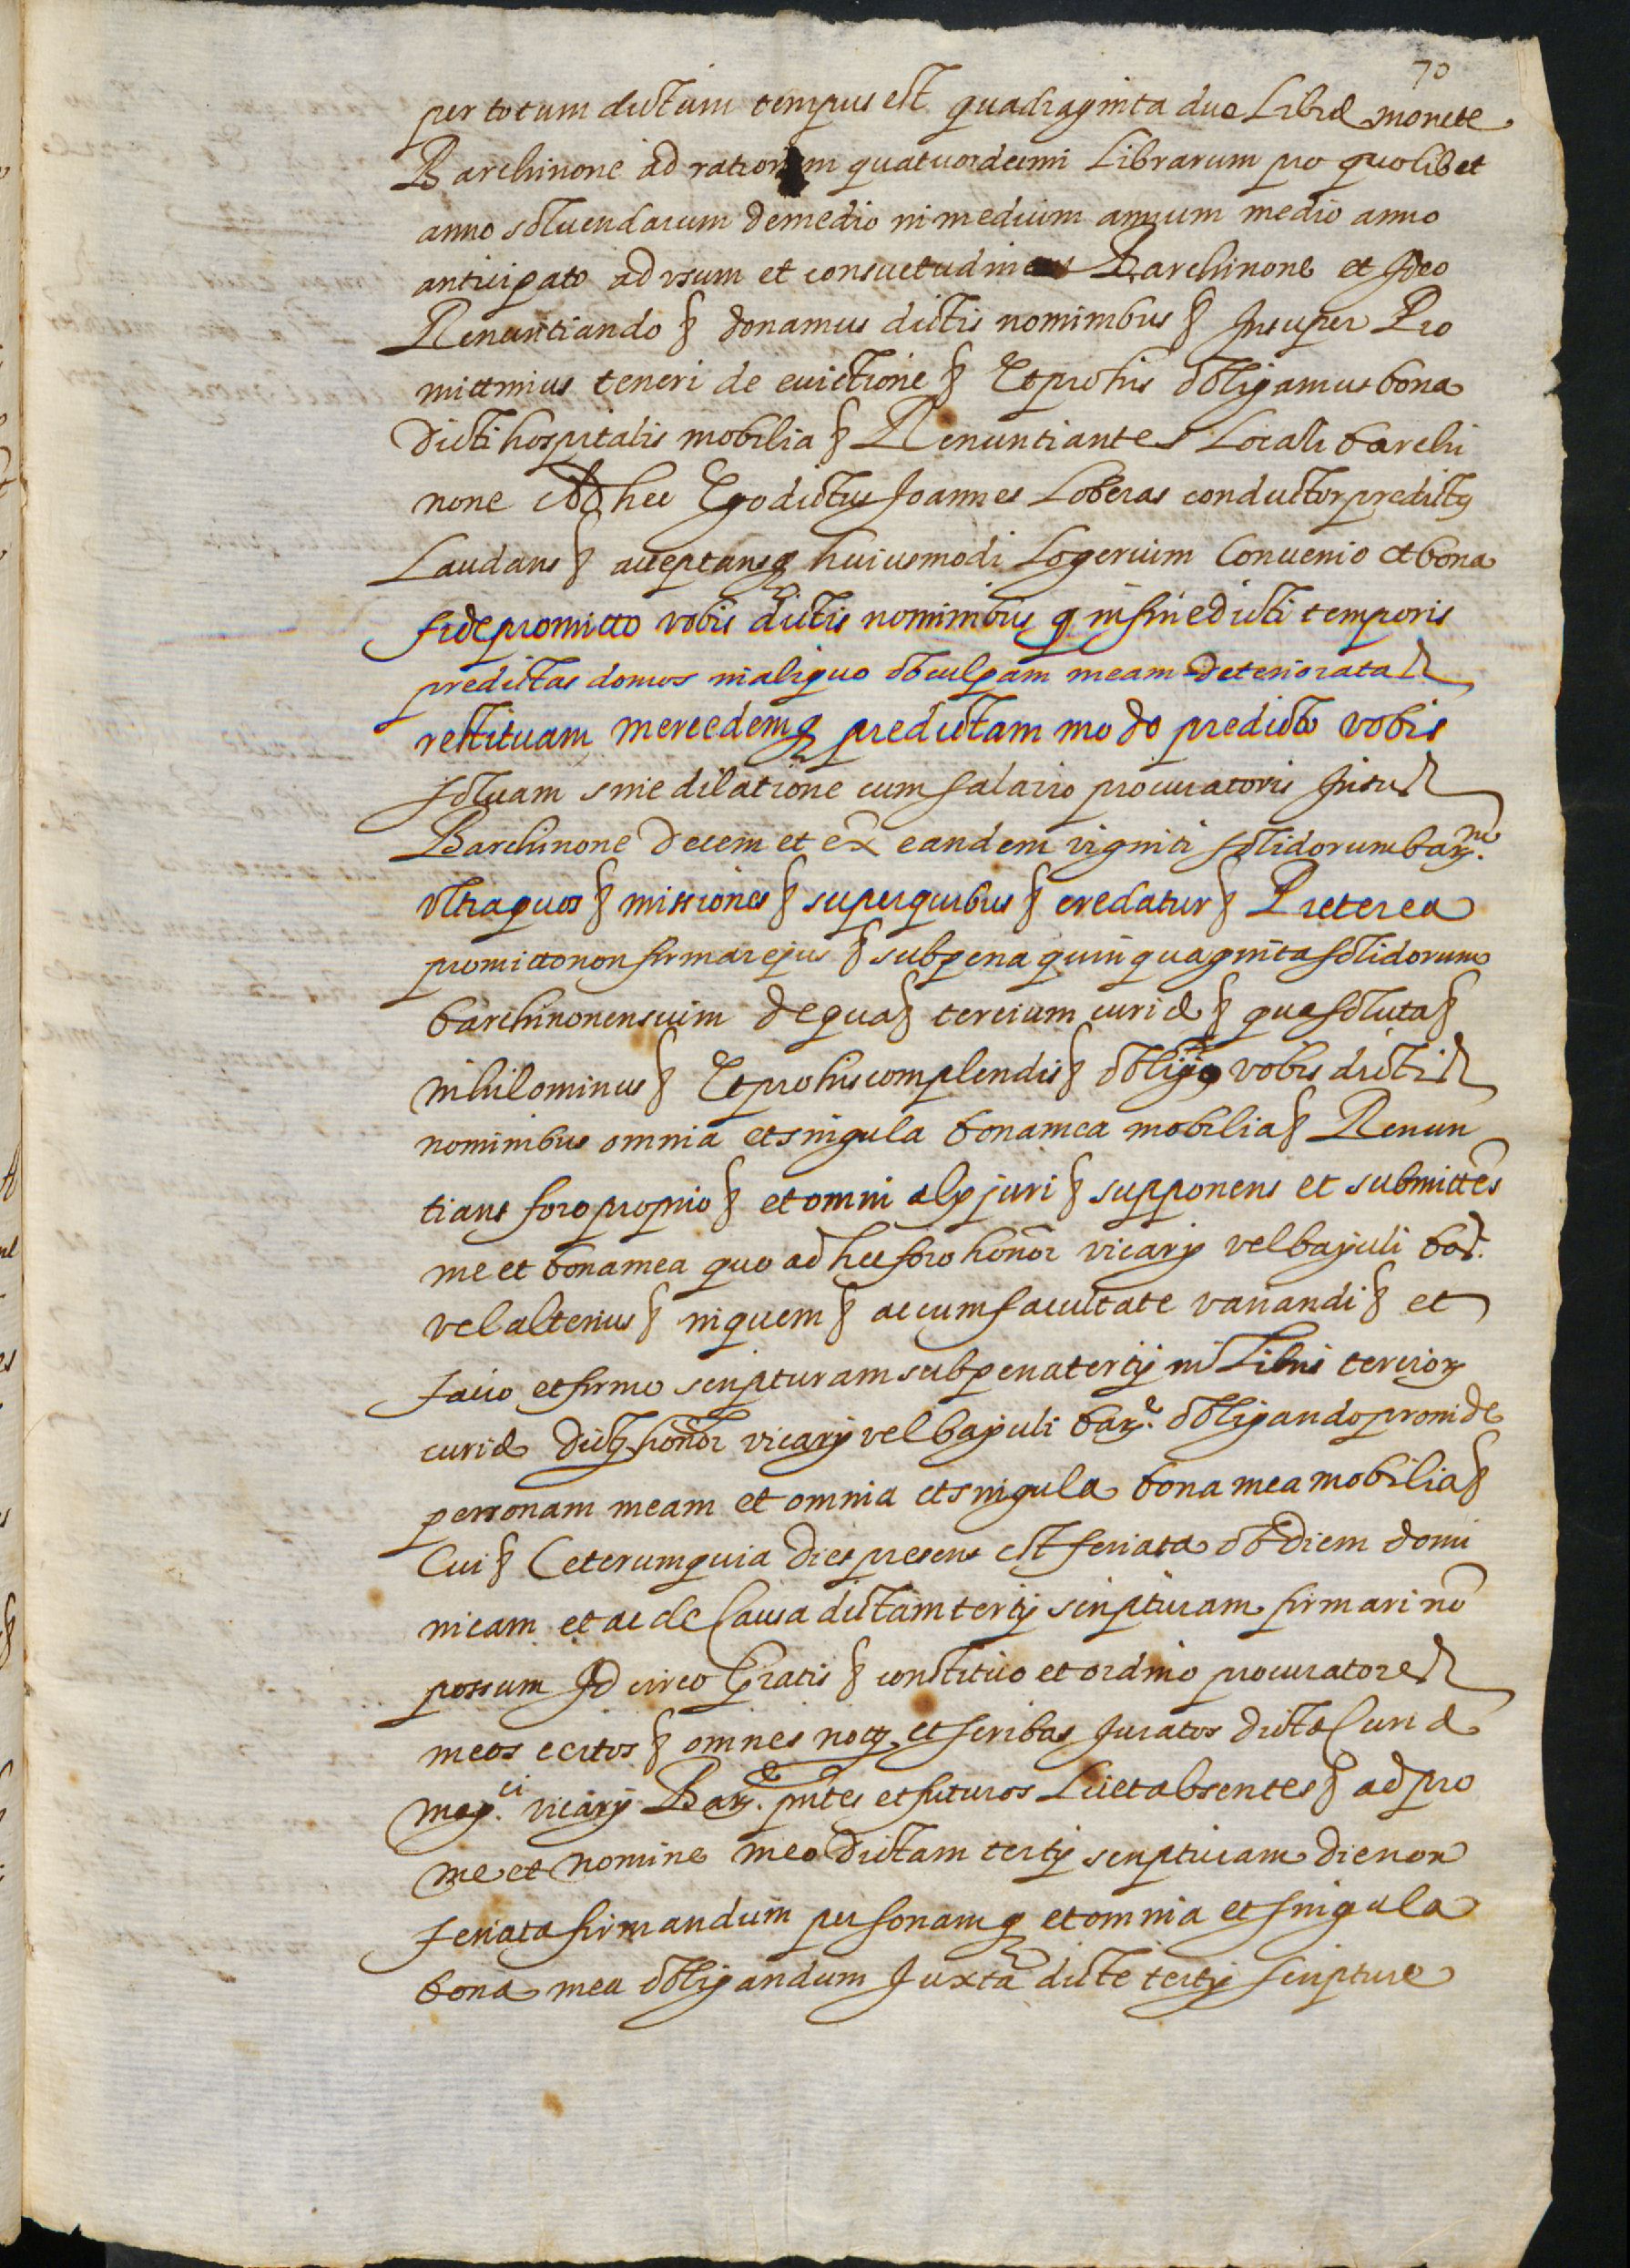 70
per totum dictum tempus est quadraginta due Libræ monete
Barchinone ad rationem quatuordecim Librarum pro quolibet
anno solvendarum de medio in medium annum medio anno
anticipato ad usum et consuetudinem Barchinone et Ideo
Renuntiando § donamus dictis nominibus § Insuper Pro
mittimus teneri de evictione § Et pro his obligamus bona
dicti hospitalis mobilia § Renuntiantes Locali barchi
none Ad hec Ego dictus Joannes Loberas conductor predictus
Laudans § acceptansq huiusmodi Logerium Convenio et bona
fide promitto vobis dictis nominibus q in fine dicti temporis
predictas domos in aliquo ob culpam meam deterioratas
restituam mercedemq predictam modo predicto vobis
solvam sine dilatione cum salario procuratoris Intus
Barchinone decem et ex eandem viginti solidorum bar.ne
ultra quos § missiones § super quibus § credatur § Preterea
promitto non firmare jus § sub pena quinquaginta solidorum
barchinonensium de qua § tercium curiæ § qua soluta §
nihilominus § Et pro his complendis § obligo vobis dictis
nominibus omnia et singula bona mea mobilia § Renun
tians foro proprio § et omni alÿ juri § supponens et submittēs
me et bona mea quo ad hec foro honor vicarÿ vel bajuli bar.
vel alterius § in quem § ac cum facultate variandi § et
facio et firmo scripturam sub pena tertÿ in Libris tercior
curiæ dict honor vicarÿ vel bajuli bar.e obligando proinde
personam meam et omnia et singula bona mea mobilia §
Cui § Ceterum quia dies presens est feriata ob diem domi
nicam et ac de Causa dictam tertÿ scripturam firmari nō
possum Id circo Gratis § constituo et ordino procuratores
meos certos § omnes not et scribas Juratos dictæ Curiæ
mag.ci vicarÿ Bar.e pntes et futuros Licet absentes § ad pro
me et nomine meo dictam tertÿ scripturam die non
feriata firmandum personamq et omnia et singula
bona mea obligandum Juxta dicte tertÿ scripture